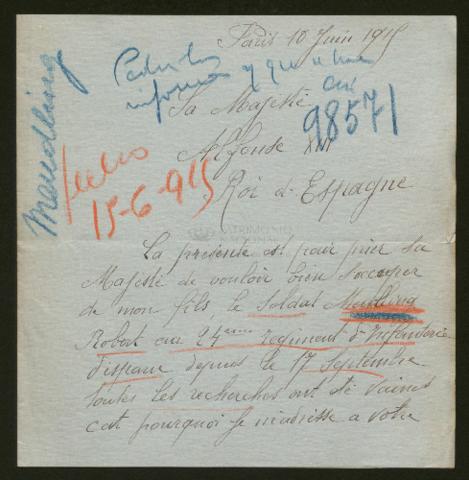 Paris 10 Juin 1915
Maudling
Pedir los
informes y que
98571
Sa Majesté
Alfonse XIII
Roi d'Espagne
hecho
15-6-915
PATRIMONIO
NACIONAL
La présente est pour prier sa
Majesté de vouloir bien s'occuper
de mon fils, le Soldat Maudling
Robert au 24eme regiment d'Infanterie
disparu depuis le 17 Septembre
toutes les recherches ont été vaines
c'est pourquoi je m'adresse a votre